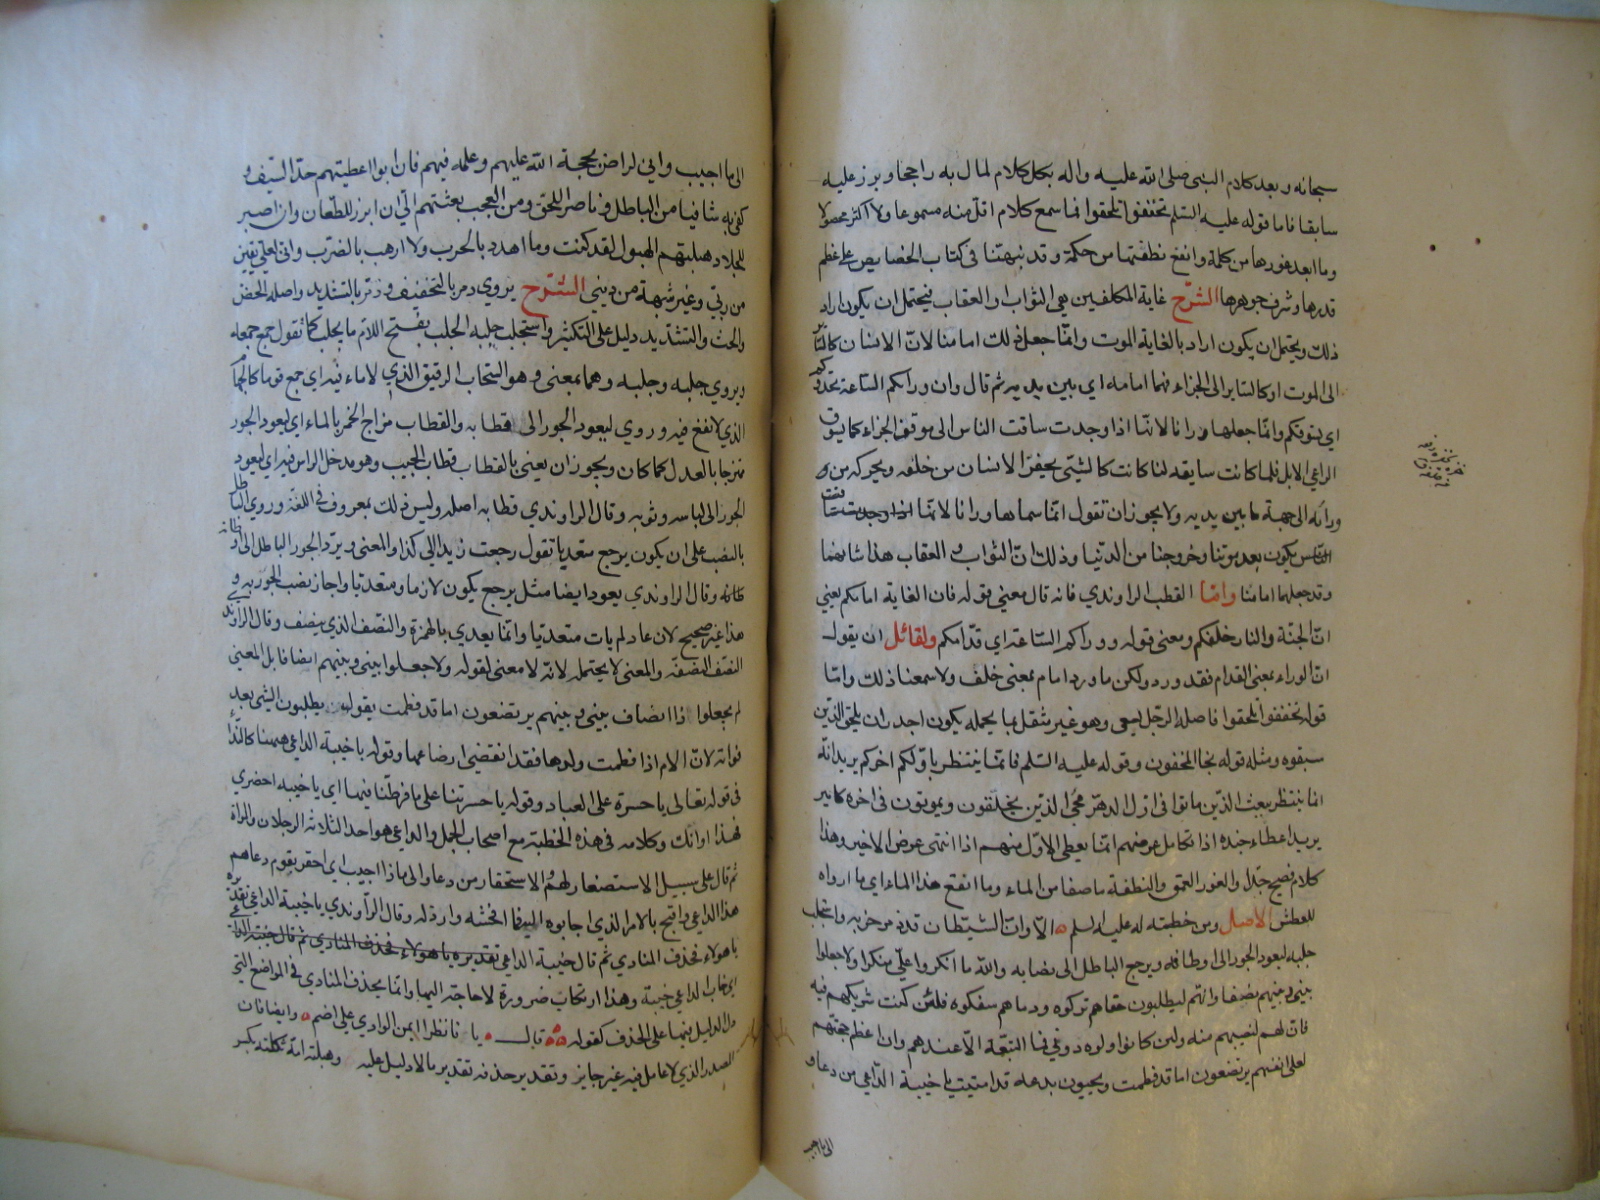 سبحانه وبعد كلام النبي صلى الله عليه واله بكل كلام لمال به راجحا وبرز عليه
سابقا فاما قوله عليه السلم تخففوا تلحقوا فما سمع كلام اقل منه مسموعا ولا اكثر محصولا
وما ابعد غورها من كلمة وانقع نطفتها من حكمة وقد نبهتنا في كتاب الخصايص على عظم
قدرها وشرف جوهرها الشرح غاية المكلفين هي الثواب او العقاب فيحتمل ان يكون اراد
ذلك ويحتمل ان يكون اراد بالغاية الموت وانما جعل ذلك امامنا لان الانسان كالساير
الى الموت او كالساير الى الجزاء فهما امامه اي بين يديه ثم قال وان وراكم الساعة تحدوكم
اي تسوقكم وانما جعلها ورانا لانها اذا وجدت ساقت الناس الى موقف الجزاء كما يسوق
الراعي الابل فلما كانت سايقة لنا كانت كالشئ يحفز الانسان من خلفه ويحركه من
ورائه الى جهة ما بين يديه ولا يجوز ان تقول انما سماها ورانا لانها
يكون بعد موتنا وخروجنا من الدنيا وذلك ان الثواب والعقاب هذا شانهما
وقد جعلهما امامنا واما القطب الراوندي فانه قال معنى قوله فان الغاية امامكم يعني
ان الجنة والنار خلفكم ومعنى قوله ووراكم الساعة اي قدامكم ولقائل ان يقول
ان الوراء بمعنى القدام فقد ورد ولكن ما ورد امام بمعنى خلف ولا سمعنا ذلك واما
قوله تخففوا تلحقوا فاصله الرجل يسعى وهو غير مثقل بما يحمله يكون اجدر ان يلحق الذين
سبقوه ومثله قوله نجا المخفون وقوله عليه السلم فانما ينتظر باولكم اخركم يريد انه
انما ينتظر ببعث الذين ماتوا في اول الدهر مجئ الذين يخلقون ويموتون في اخره كامير
يريد اعطاء جنده اذا تكامل عرضهم انما يعطي الاول منهم اذا انتهى عرض الاخير وهذا
كلام فصيح جدا والغور العمق والنطفة ما صفا من الماء وما انقع هذا الماء اي ما ارواه
للعطش الاصل ومن خطبة له عليه السلم الا وان الشيطان قد ذمر حزبه واستجلب
جلبه ليعود الجور الى اوطانه ويرجع الباطل الى نصابه والله ما انكروا علي منكرا ولا جعلوا
بيني وبينهم نصفا وانهم ليطلبون حقا هم تركوه ودما هم سفكوه فلئن كنت شريكهم فيه
فان لهم لنصيبهم منه ولين كانوا ولوه دوني فما التبعة الا عندهم وان اعظم حجتهم
لعلى انفسهم يرتضعون اما قد فطمت ويحيون بدعة قد اميتت يا خيبة الداعي من دعا و
الى ما اجيب
الى ما اجيب واني لراض بحجة الله عليهم وعلمه فيهم فان ابوا اعطيتهم حد السيف و
كفى به شافيا من الباطل وناصرا للحق ومن العجب بعثتهم الي ان ابرز للطعان وان اصبر
للجلاد هبلتهم الهبول لقد كنت وما اهدد بالحرب ولا ارهب بالضرب واني لعلى يقين
من ربي وغير شبهة من ديني الشرح يروى ذمر بالتخفيف وذمر بالتشديد واصله الحض
والحث والتشديد دليل على التكثير واستجلب جلبه الجلب بفتح اللام ما يجلب كما تقول جمع جمعه
ويروى جلبه وجلبه وهما بمعنى وهو السحاب الرقيق الذي لا ماء فيه اي جمع قوما كالجهام
الذي لا نفع فيه وروي ليعود الجور الى قطابه والقطاب مزاج الخمر بالماء اي ليعود الجور
ممتزجا بالعدل كما كان ويجوز ان يعني بالقطاب قطاب الجيب وهو مدخل الراس فيه اي ليعود
الجور الى لباسه وثوبه وقال الراوندي قطابه اصله وليس ذلك بمعروف في اللغة وروي الباطل
بالنصب على ان يكون يرجع متعديا تقول رجعت زيدا الى كذا والمعنى ويرد الجور الباطل الى اوطانه
وقال الراوندي يعود ايضا مثل يرجع يكون لازما ومتعديا واجاز نصب الجور به و
هذا غير صحيح لان عاد لم يات متعديا وانما يعدى بالهمزة والنصف الذي ينصف وقال الراوندي
النصف النصفة والمعنى لا يحتمله لانه لا معنى لقوله ولا جعلوا بيني وبينهم انصافا بل المعنى
لم يجعلوا ذا انصاف بيني وبينهم يرتضعون اما قد فطمت يقول يطلبون الشئ بعد
فواته لان الام اذا فطمت ولدها فقد انقضى ارضاعها وقوله يا خيبة الداعي ههنا كالنداء
في قوله تعالى يا حسرة على العباد وقوله يا حسرتنا على ما فرطنا فيها اي يا خيبة احضري
فهذا اوانك وكلامه في هذه الخطبة مع اصحاب الجمل والداعي هو احد الثلاثة الرجلان والمراة
ثم قال على سبيل الاستصغار لهم والاستحقار من دعا والى ماذا اجيب اي احقر بقوم دعاهم
هذا الداعي واقبح بالامر الذي اجابوه اليه فما افحشه وارذله وقال الراوندي يا خيبة الداعي تقديره
يا هولاء فحذف المنادي ثم قال خيبة الداعي تقديره يا هولاء فحذف المنادي ثم قال خيبة الداعي
اي خاب الداعي خيبة وهذا ارتكاب ضرورة لا حاجة اليها وانما يحذف المنادي في المواضع التي
دل الدليل فيها على الحذف كقوله يا فانظرا ايمن الوادي على اضم وايضا فان
المصدر الذي لا عامل فيه غير جايز وتقدير حذفه تقدير ما لا دليل عليه وهبلته امه ثكلته بكسر